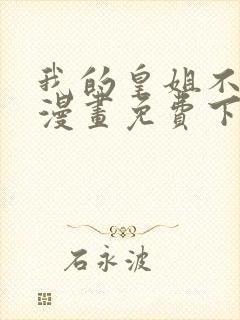 我的皇姐不
漫畫免費下
石永波